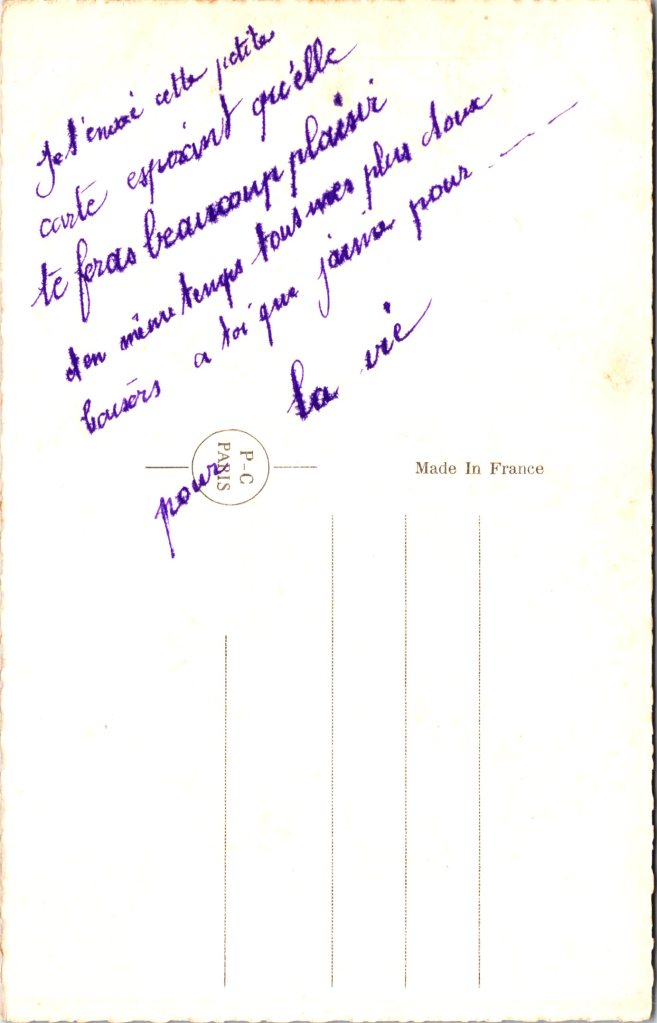 Je t'envoie cette petite
carte espoirant qu'elle
te feras beaucoup plaisir
et en même temps tous mes plus doux
baisers a toi que j'aime pour - - -
la vie
pour
P-C
PARIS
Made In France